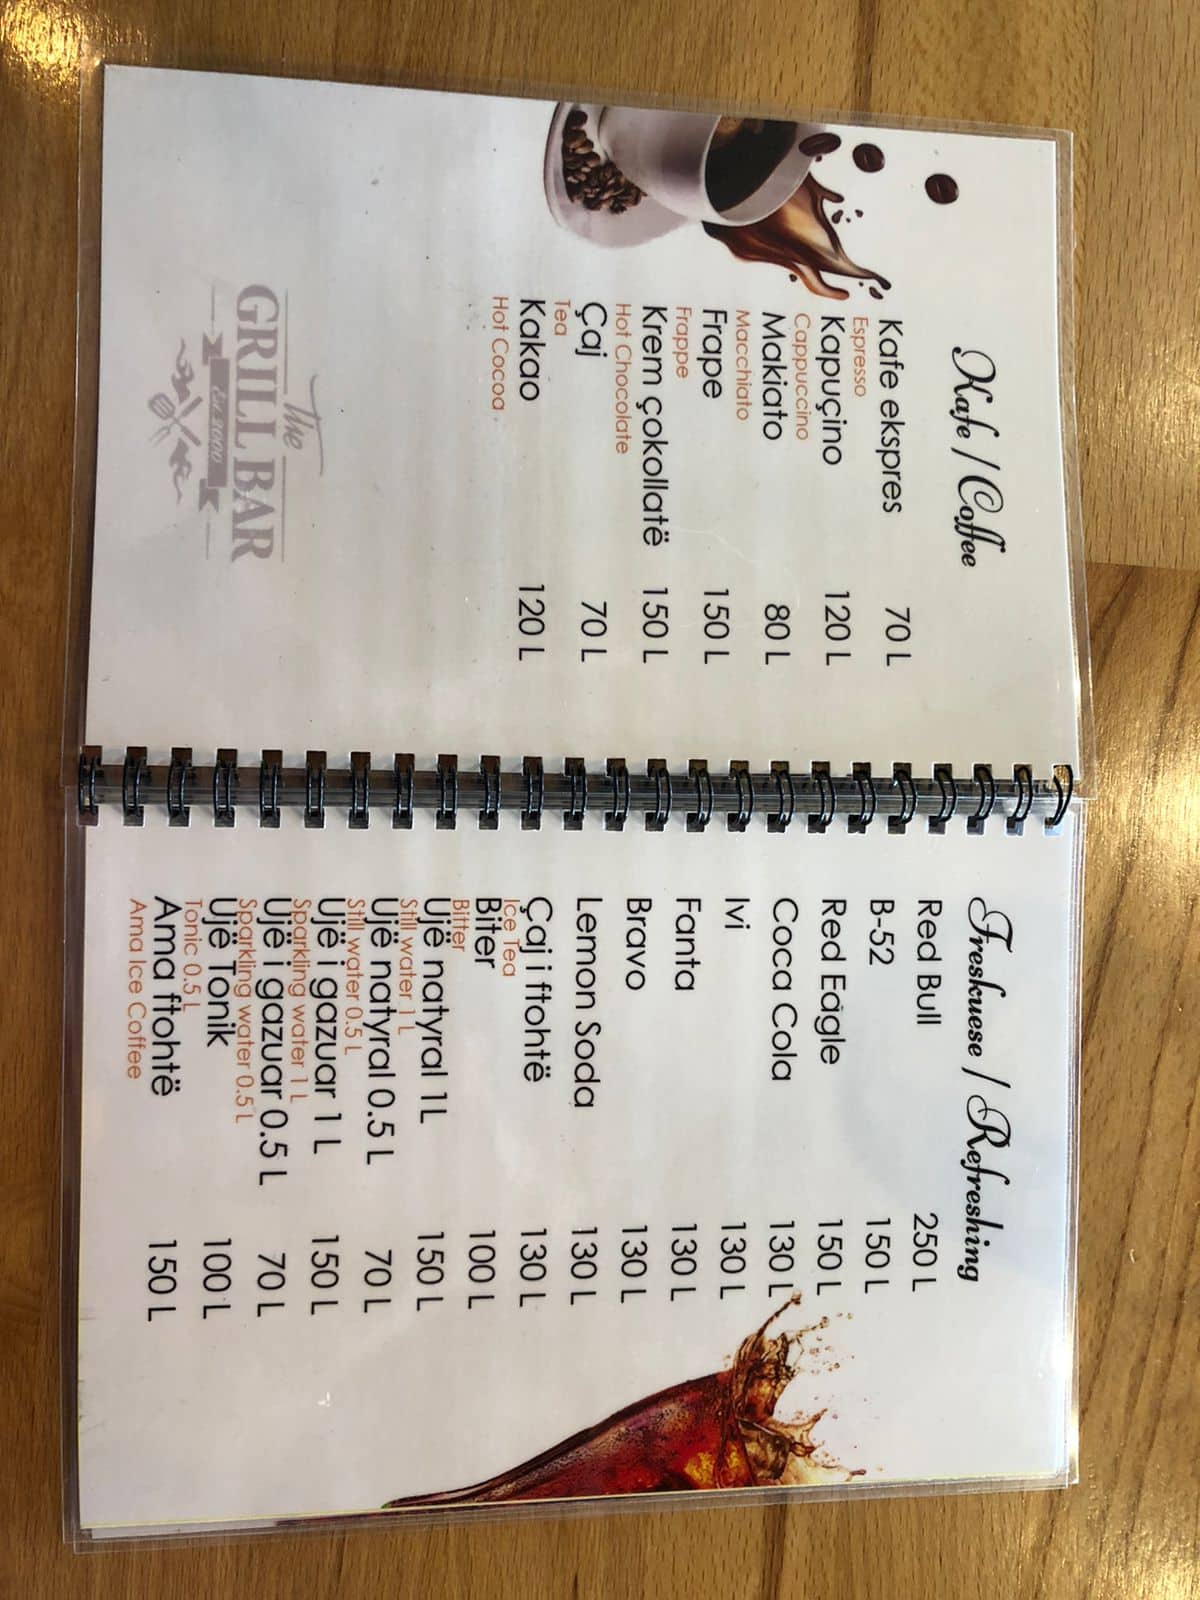 Kafe / Coffee
Kafe ekspres 70 L
Espresso
Kapuçino 120 L
Cappuccino
Makiato 80 L
Macchiato
Frape 150 L
Frappe
Krem çokollatë 150 L
Hot Chocolate
Çaj 70 L
Tea
Kakao 120 L
Hot Cocoa
The
GRILL BAR
Est. 2000
Freskuese / Refreshing
Red Bull 250 L
B-52 150 L
Red Eagle 150 L
Coca Cola 130 L
Ivi 130 L
Fanta 130 L
Bravo 130 L
Lemon Soda 130 L
Çaj i ftohtë 130 L
Ice Tea
Biter 100 L
Bitter
Ujë natyral 1L 150 L
Still water 1 L
Ujë natyral 0.5 L 70 L
Still water 0.5 L
Ujë i gazuar 1 L 150 L
Sparkling water 1 L
Ujë i gazuar 0.5 L 70 L
Sparkling water 0.5 L
Ujë Tonik 100 L
Tonic 0.5 L
Ama ftohtë 150 L
Ama Ice Coffee